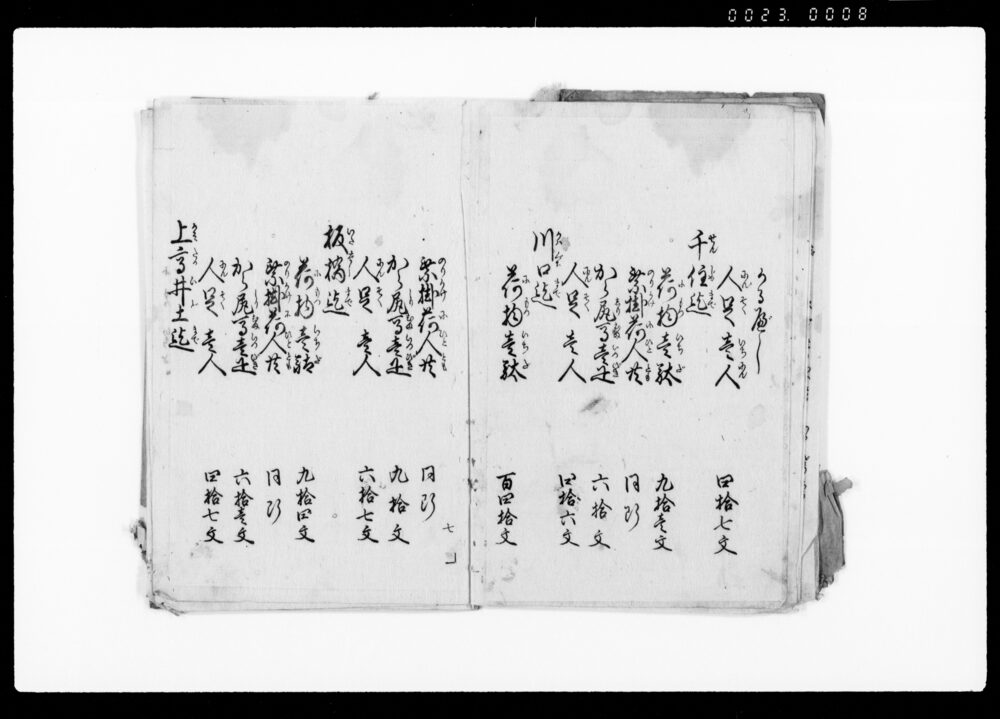 0023. 0008
人足壱人 四拾七文
千住迄
荷物壱駄 九拾壱文
乗掛荷人共 同断
から尻馬壱疋 六拾文
人足壱人 四拾六文
川口迄
荷物壱駄 百四拾文
乗掛荷人共 同断
から尻馬壱疋 九拾文
人足壱人 六拾七文
板橋迄
荷物壱駄 九拾四文
乗掛荷人共 同断
から尻馬壱疋 六拾壱文
人足壱人 四拾七文
上高井土迄
七